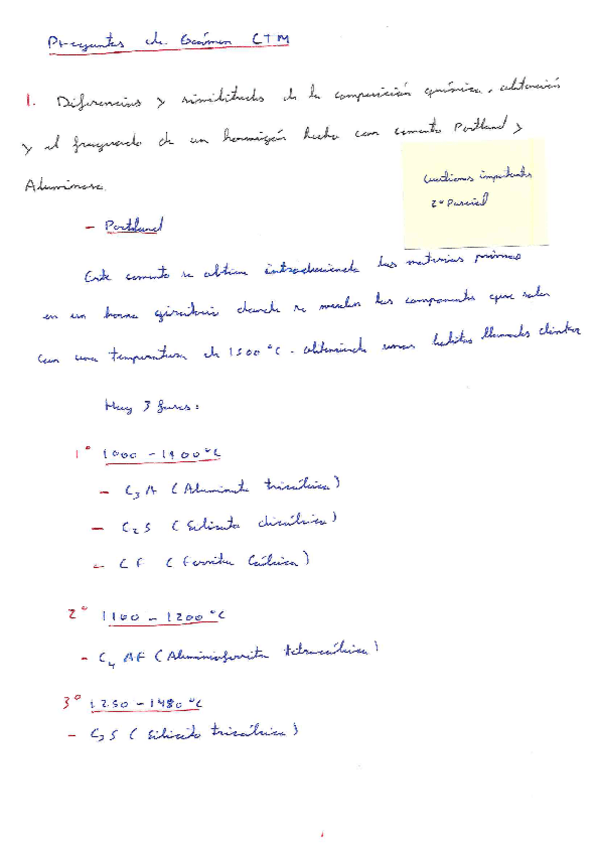 Preguntas de Exámen CTM
1. Diferencias y similitudes de la composición química, obtención
y el fraguado de un hormigón hecho con cemento Portland y
Aluminoso.
Cuestiones importantes
2º Parcial
- Portland
Este cemento se obtiene introduciendo las materias primas
en un horno giratorio donde se mezclan los componentes que salen
con una temperatura de 1500 ºC. obteniendo unas bolitas llamadas clinker
Hay 3 fases:
1º 1000 - 1100 ºC
- C3A (Aluminato tricálcico)
- C2S (Silicato dicálcico)
- CF (Ferrito Cálcico)
2º 1100 - 1200 ºC
- C4AF (Aluminoferrito tetracálcico)
3º 1250 - 1480 ºC
- C3S (Silicato tricálcico)